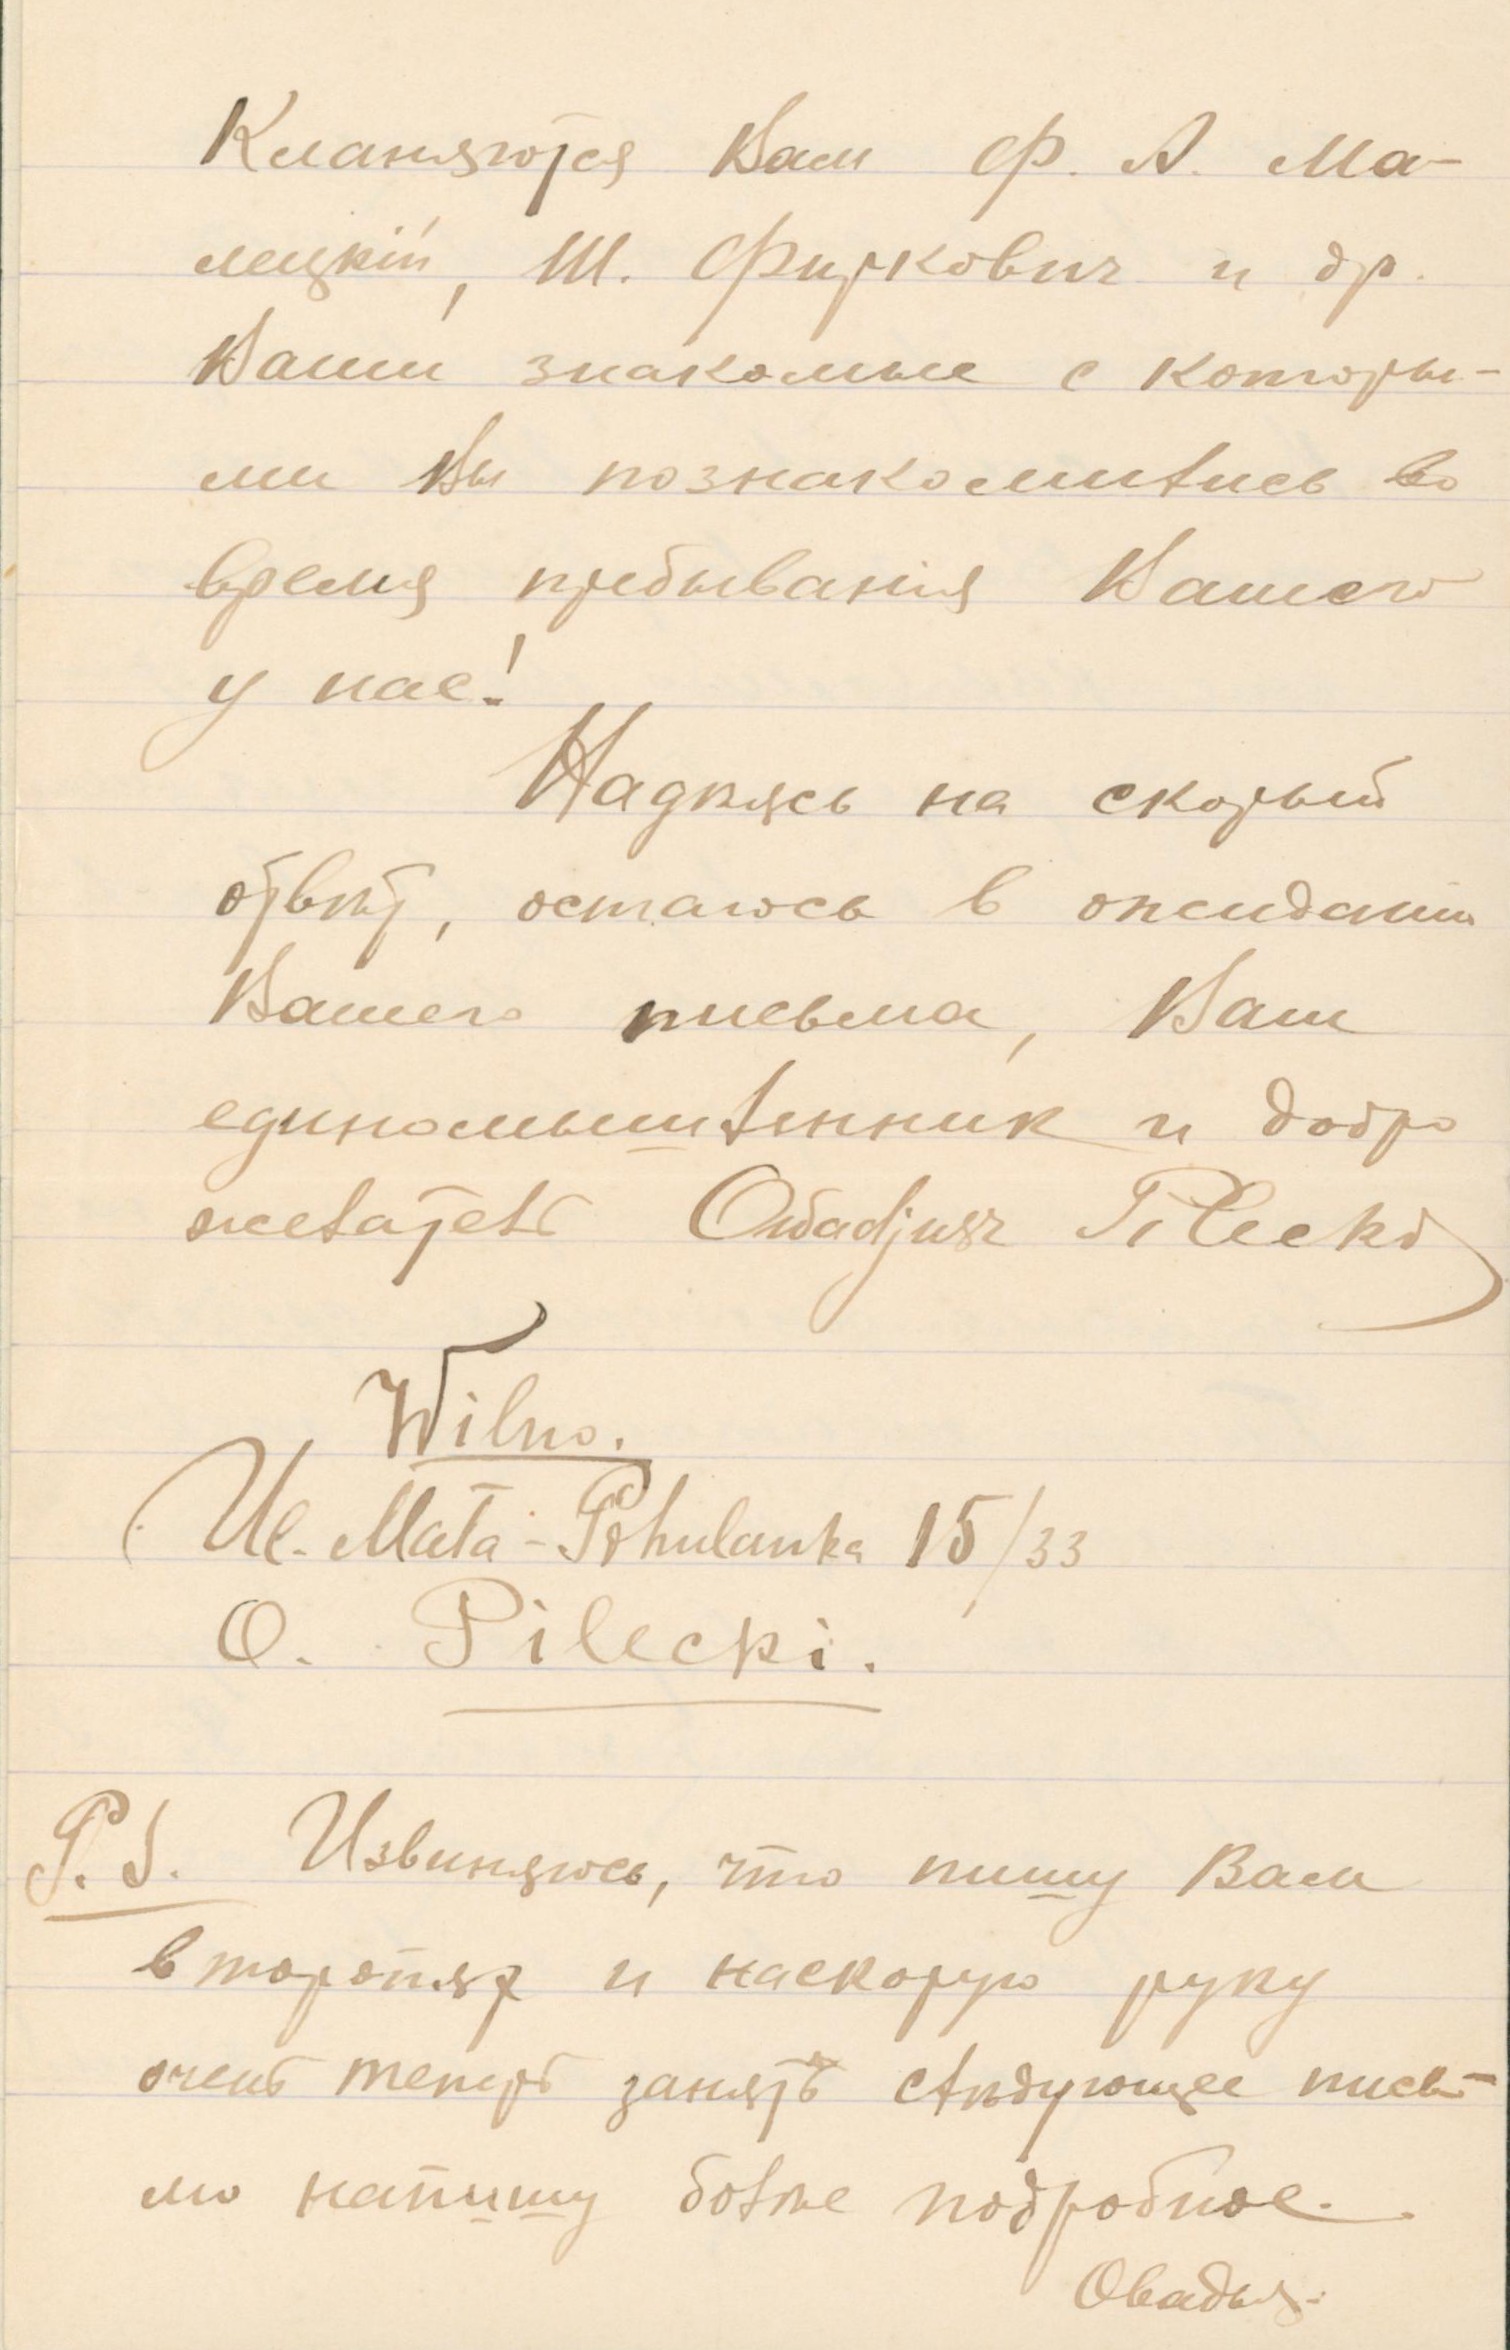 Кланяются Вам Ф. А. Ма-
лецкій, Ш. Фиркович и др.
Ваши знакомые с которы-
ми Вы познакомились во
время пребыванія Вашего
у нас!
Надѣясь на скорый
отвѣт, остаюсь в ожиданіи
Вашего письма, Ваш
единомышленник и добро
желатель Owadjusz Pilecki
Wilno.
Ul. Mała-Pohulanka 15/33
O. Pilecki.
P.S. Извиняюсь, что пишу Вам
в торопях и наскорую руку
очень теперь занятъ слѣдующее пись-
мо напишу болѣе подробное.
Овадья.